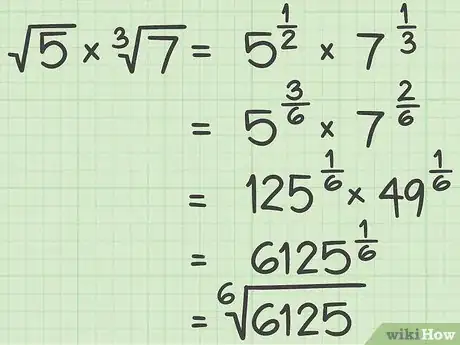 √5 × ³√7 = 5^(1/2) × 7^(1/3)
= 5^(3/6) × 7^(2/6)
= 125^(1/6) × 49^(1/6)
= 6125^(1/6)
= ⁶√6125
wikiHow